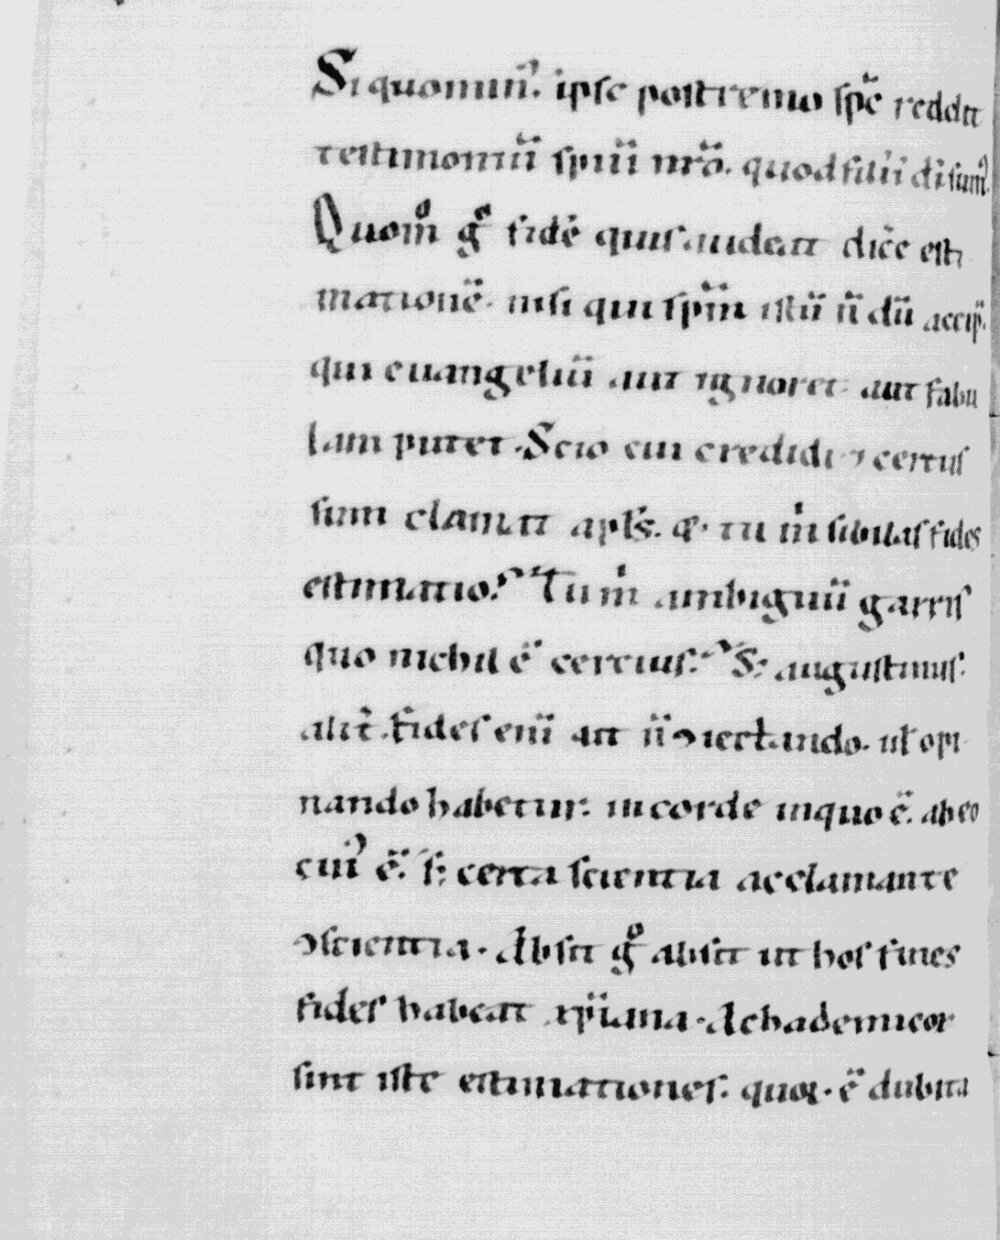 Si quomin᷒. ipse postremo sp̄c reddit
testimoniū spiū nr̄o. quod filii dī sum᷒.
Quom̊ gͦ fidē quis audeat dic̄e esti
mationē. nisi qui sp̄m istū n̄ dū accip̄.
qui euangeliū aut ignoret aut fabu
lam putet. Scio cui credidi ⁊ certus
sum clamat apl̄s. & tu m̍ sibilas fides
estimatio? Tu m̍ ambiguū garris
quo nichil ē cercius? S; augustinus.
alit̄. Fides enī at n̄ ꝯiectando. ul̄ opi
nando habetur. in corde in quo ē. ab eo
cui᷒ ē. s; certa scientia acclamante
ꝯscientia. Absit gͦ absit ut hos fines
fides habeat xp̄iana. Achademicor
sint iste estimationes. quoꝝ. ē dubita